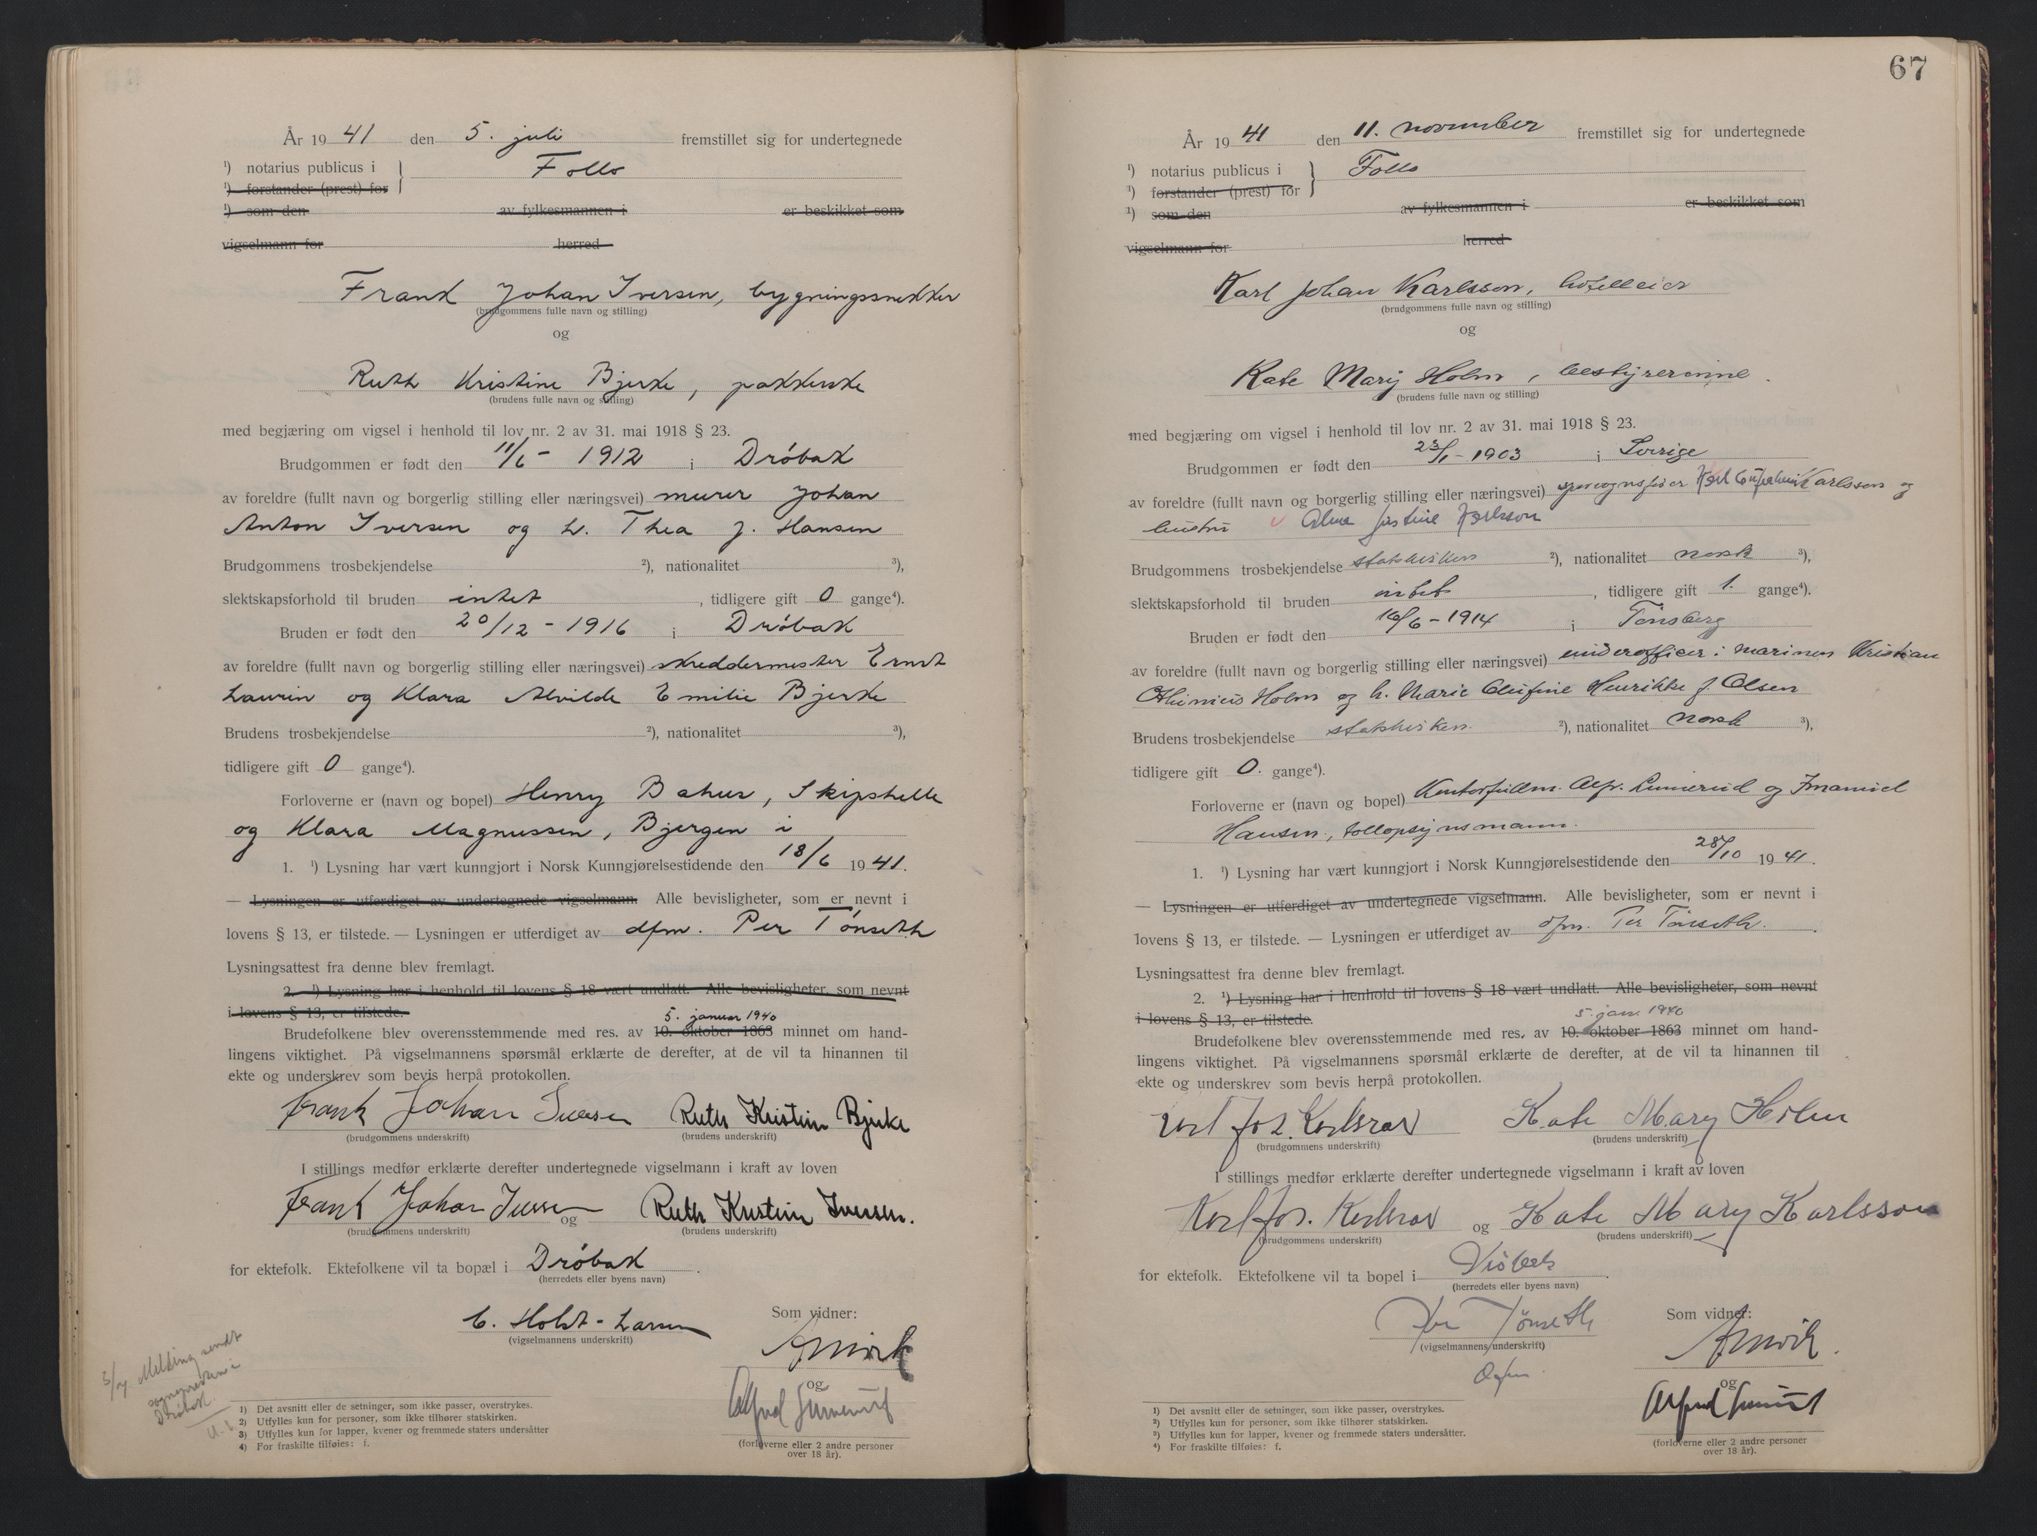 År 19 41 den 5. juli fremstillet sig for undertegnede
¹) notarius publicus i } Follo
¹) forstander (prest) for
¹) som den av fylkesmannen i er beskikket som
vigselmann for herred
Frank Johan Iversen, bygningssnekker
(brudgommens fulle navn og stilling)
og
Ruth Kristine Bjerke, pakkerske
(brudens fulle navn og stilling)
med begjæring om vigsel i henhold til lov nr. 2 av 31. mai 1918 § 23.
Brudgommen er født den 11/6 - 1912 i Drøbak
av foreldre (fullt navn og borgerlig stilling eller næringsvei) murer Johan
Anton Iversen og h. Thea f. Hansen
Brudgommens trosbekjendelse ²), nationalitet ³),
slektskapsforhold til bruden intet, tidligere gift 0 gange⁴).
Bruden er født den 20/12 - 1916 i Drøbak
av foreldre (fullt navn og borgerlig stilling eller næringsvei) skreddermester Ernst
Laurin og Klara Alvilde Emilie Bjerke
Brudens trosbekjendelse ²), nationalitet ³),
tidligere gift 0 gange⁴).
Forloverne er (navn og bopel) Henry Bahus, Skiphelle
og Klara Magnussen, Bjergen i
1. ¹) Lysning har vært kunngjort i Norsk Kunngjørelsestidende den 18/6 19 41.
— Lysningen er utferdiget av undertegnede vigselmann. Alle bevisligheter, som er nevnt i
lovens § 13, er tilstede. — Lysningen er utferdiget av dfm. Per Tønseth
Lysningsattest fra denne blev fremlagt.
2. ¹) Lysning har i henhold til lovens § 18 vært undlatt. Alle bevisligheter, som nevnt
i lovens § 13, er tilstede.
5. januar 1940
Brudefolkene blev overensstemmende med res. av 10. oktober 1863 minnet om hand-
lingens viktighet. På vigselmannens spørsmål erklærte de derefter, at de vil ta hinannen til
ekte og underskrev som bevis herpå protokollen.
Frank Johan Iversen Ruth Kristine Bjerke
(brudgommens underskrift) (brudens underskrift)
I stillings medfør erklærte derefter undertegnede vigselmann i kraft av loven
Frank Johan Iversen og Ruth Kristine Iversen.
(brudgommens underskrift) (brudens underskrift)
for ektefolk. Ektefolkene vil ta bopæl i Drøbak
(herredets eller byens navn)
C. Holst-Larsen Som vidner:
(vigselmannens underskrift)
og
(forloverne eller 2 andre personer
over 18 år).
5/7 Melding sendt
sognepresten i
Drøbak
1) Det avsnitt eller de setninger, som ikke passer, overstrykes.
2) Utfylles kun for personer, som ikke tilhører statskirken.
3) Utfylles kun for lapper, kvener og fremmede staters undersåtter
4) For fraskilte tilføies: f.
67
År 19 41 den 11. november fremstillet sig for undertegnede
¹) notarius publicus i } Follo
¹) forstander (prest) for
¹) som den av fylkesmannen i er beskikket som
vigselmann for herred
Karl Johan Karlsson, hotelleier
(brudgommens fulle navn og stilling)
og
Kate Mary Holm, bestyrerinne.
(brudens fulle navn og stilling)
med begjæring om vigsel i henhold til lov nr. 2 av 31. mai 1918 § 23.
Brudgommen er født den 23/1 - 1903 i Sverige
av foreldre (fullt navn og borgerlig stilling eller næringsvei) Karl Karlsson og
hustru Alma Justine Karlsson
Brudgommens trosbekjendelse statskirken ²), nationalitet norsk ³),
slektskapsforhold til bruden intet, tidligere gift 1. gange⁴).
Bruden er født den 16/6 - 1914 i Tønsberg
av foreldre (fullt navn og borgerlig stilling eller næringsvei) underofficer i marinen Kristian
Holm og h. Marie Henrikke f. Olsen
Brudens trosbekjendelse statskirken. ²), nationalitet norsk ³),
tidligere gift 0. gange⁴).
Forloverne er (navn og bopel) Kontorfullm. Alfr. og Imanuel
Hansen, tollopsynsmann.
1. ¹) Lysning har vært kunngjort i Norsk Kunngjørelsestidende den 28/10 19 41.
— Lysningen er utferdiget av undertegnede vigselmann. Alle bevisligheter, som er nevnt i
lovens § 13, er tilstede. — Lysningen er utferdiget av dfm. Per Tønseth.
Lysningsattest fra denne blev fremlagt.
2. ¹) Lysning har i henhold til lovens § 18 vært undlatt. Alle bevisligheter, som nevnt
i lovens § 13, er tilstede.
5. jan. 1940
Brudefolkene blev overensstemmende med res. av 10. oktober 1863 minnet om hand-
lingens viktighet. På vigselmannens spørsmål erklærte de derefter, at de vil ta hinannen til
ekte og underskrev som bevis herpå protokollen.
Karl Joh. Karlsson Kate Mary Holm
(brudgommens underskrift) (brudens underskrift)
I stillings medfør erklærte derefter undertegnede vigselmann i kraft av loven
Karl Joh. Karlsson og Kate Mary Karlsson
(brudgommens underskrift) (brudens underskrift)
for ektefolk. Ektefolkene vil ta bopel i Drøbak
(herredets eller byens navn)
Per Tønseth Som vidner:
(vigselmannens underskrift)
dfm.
og
(forloverne eller 2 andre personer
over 18 år).
1) Det avsnitt eller de setninger, som ikke passer, overstrykes.
2) Utfylles kun for personer, som ikke tilhører statskirken.
3) Utfylles kun for lapper, kvener og fremmede staters undersåtter.
4) For fraskilte tilføies: f.